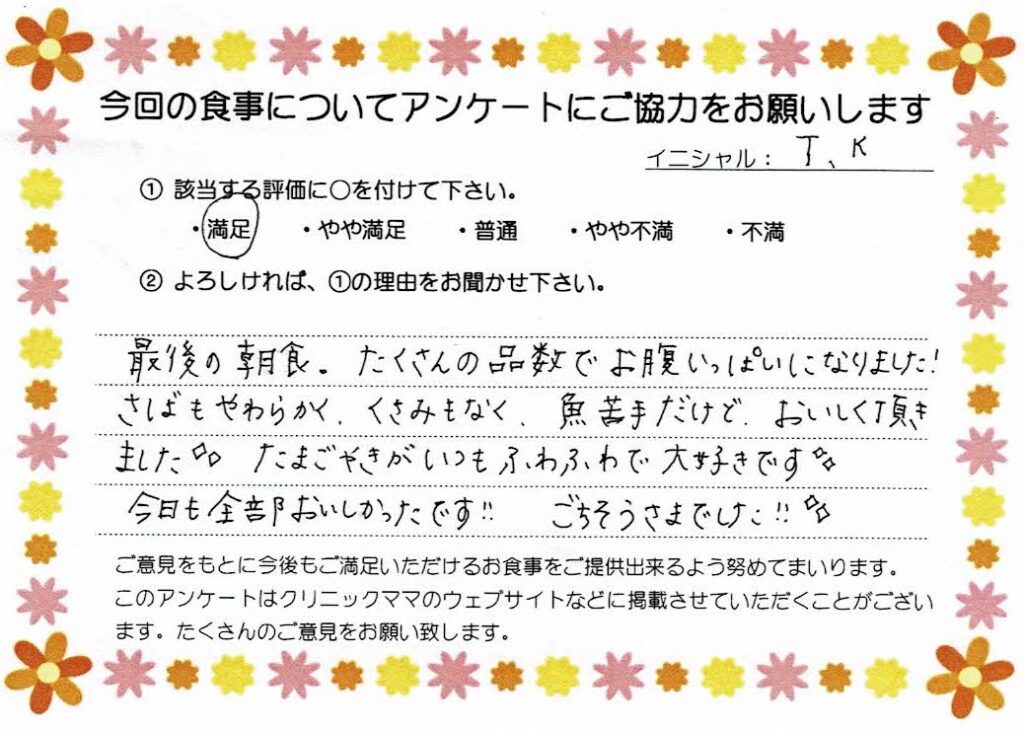 今回の食事についてアンケートにご協力をお願いします
イニシャル： T、K
① 該当する評価に〇を付けて下さい。
・満足　・やや満足　・普通　・やや不満　・不満
② よろしければ、①の理由をお聞かせ下さい。
最後の朝食。たくさんの品数でお腹いっぱいになりました!
さばもやわらかく、くさみもなく、魚苦手だけど、おいしく頂き
ました◇◇ たまごやきがいつもふわふわで大好きです◇◇
今日も全部おいしかったです!! ごちそうさまでした!!◇◇
ご意見をもとに今後もご満足いただけるお食事をご提供出来るよう努めてまいります。
このアンケートはクリニックママのウェブサイトなどに掲載させていただくことがござい
ます。たくさんのご意見をお願い致します。